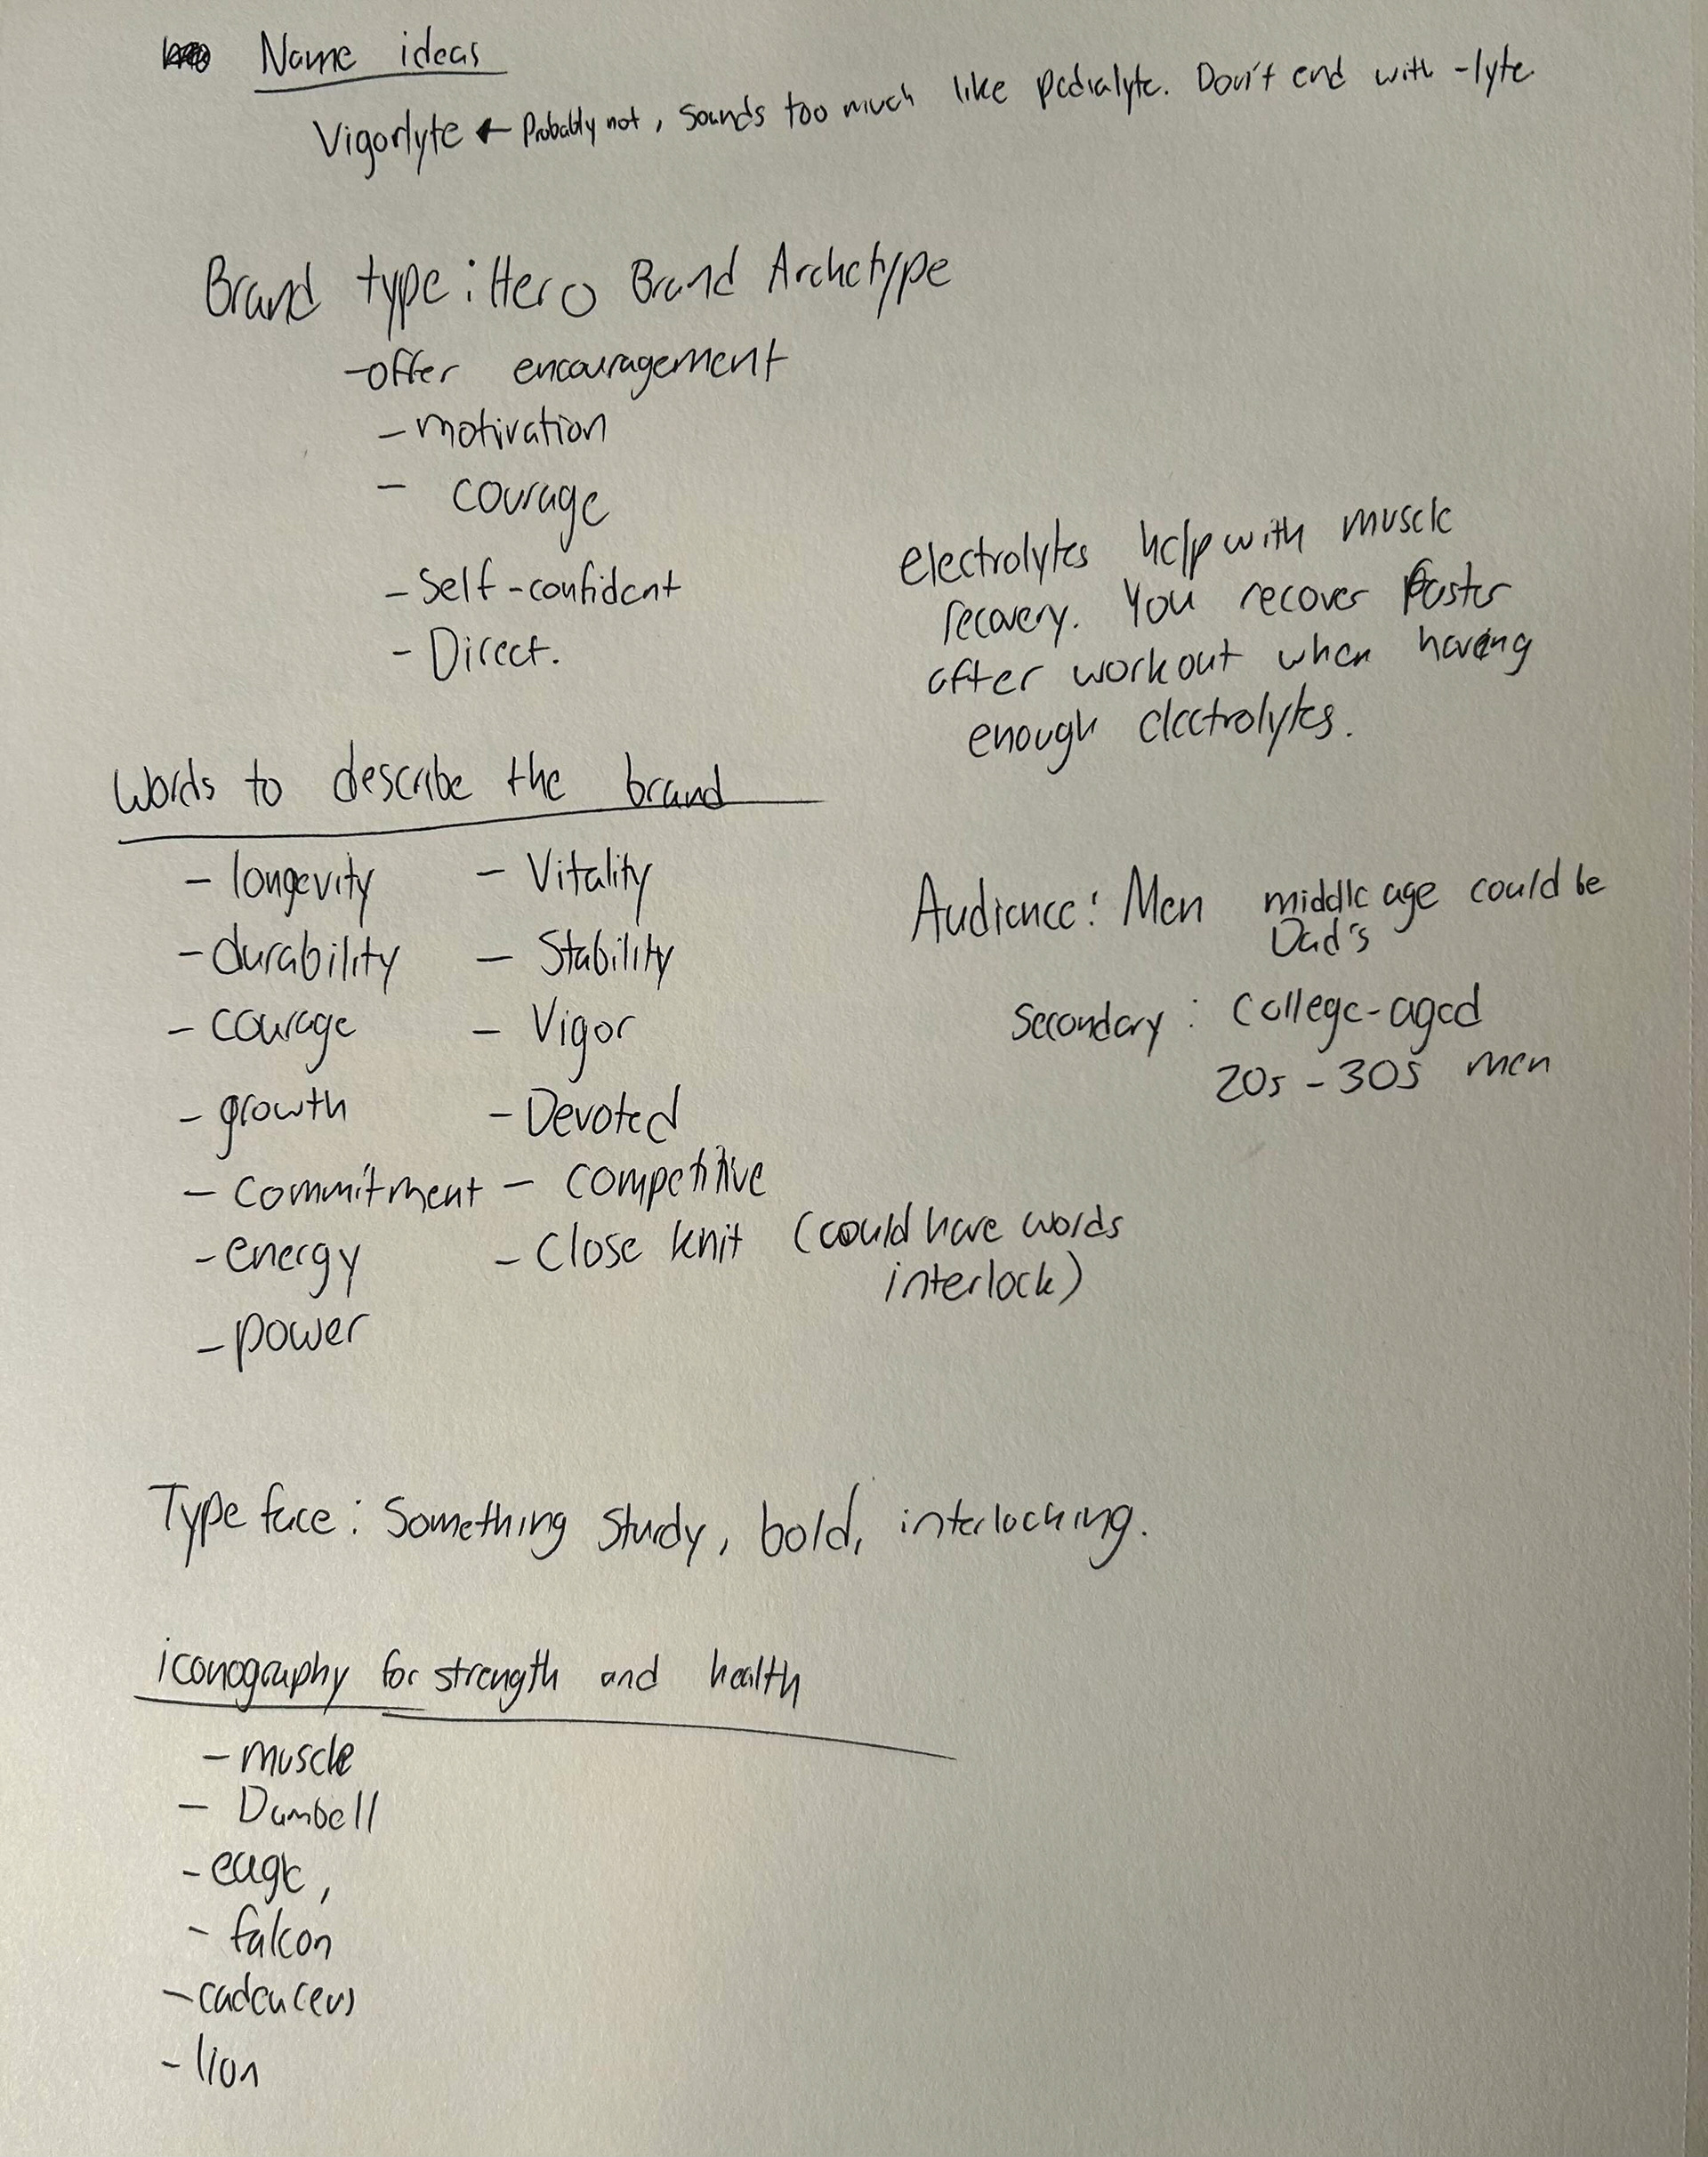 Name ideas
Vigorlyte ← Probably not, Sounds too much like pedialyte. Don't end with -lyte
Brand type: Hero Brand Archetype
- offer encouragement
- motivation
- courage
- Self-confident
- Direct.
electrolytes help with muscle
recovery. You recover faster
after workout when having
enough electrolytes.
Words to describe the brand
- longevity
- durability
- courage
- growth
- commitment
- energy
- power
- Vitality
- Stability
- Vigor
- Devoted
- competitive
- Close knit (could have words
interlock)
Audience: Men middle age could be
Dad's
Secondary: College-aged
20s - 30s men
Type face: Something Study, bold, interlocking.
iconography for strength and health
- muscle
- Dumbell
- eagle,
- falcon
- cadeuceus
- lion